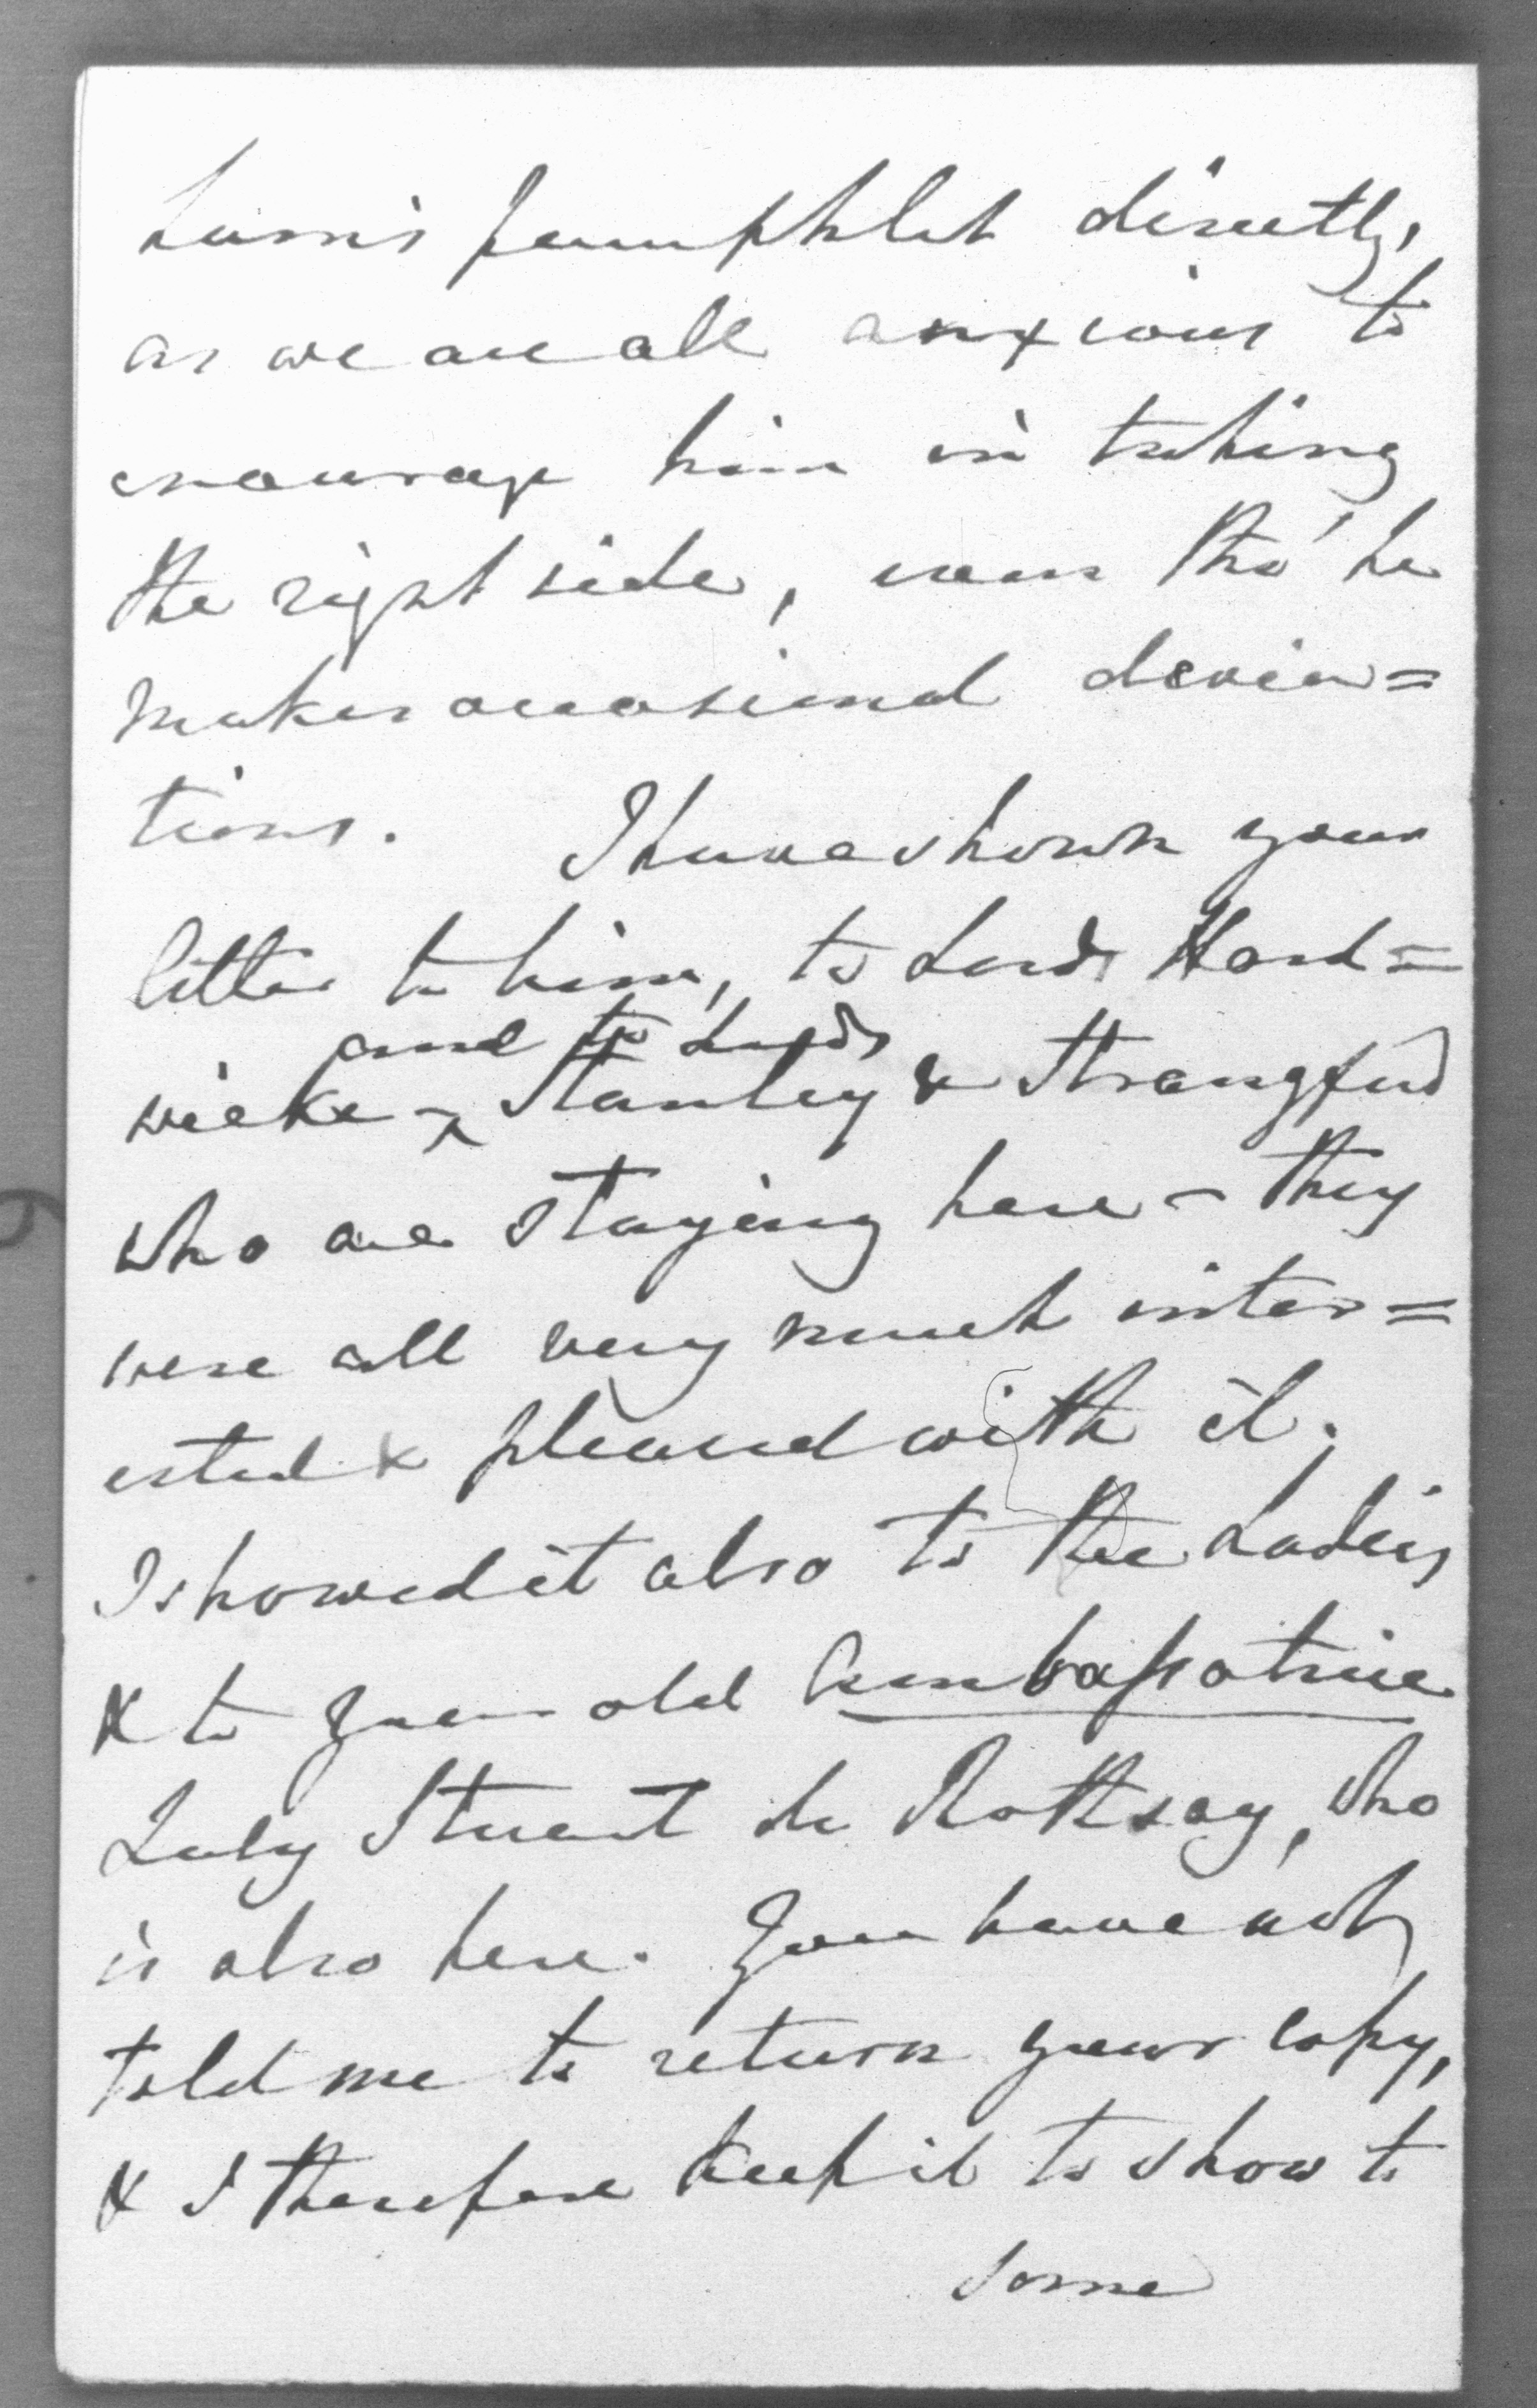 pamphlet directly,
as we are all anxious to
encourage him in taking
the right side, even tho' he
makes occasional devia=
tions. I have shown your
letter to him, to Lord Hard=
and to Lords
wicke ^ Stanley & Strangford
who are staying here - they
were all very much inter=
ested & pleased with it.
I showed it also to the Ladies
& to your old Ambassatrice
Lady Stuart de Rothsay, who
is also here. You have not
told me to return your copy,
& I therefore keep it to show to
some